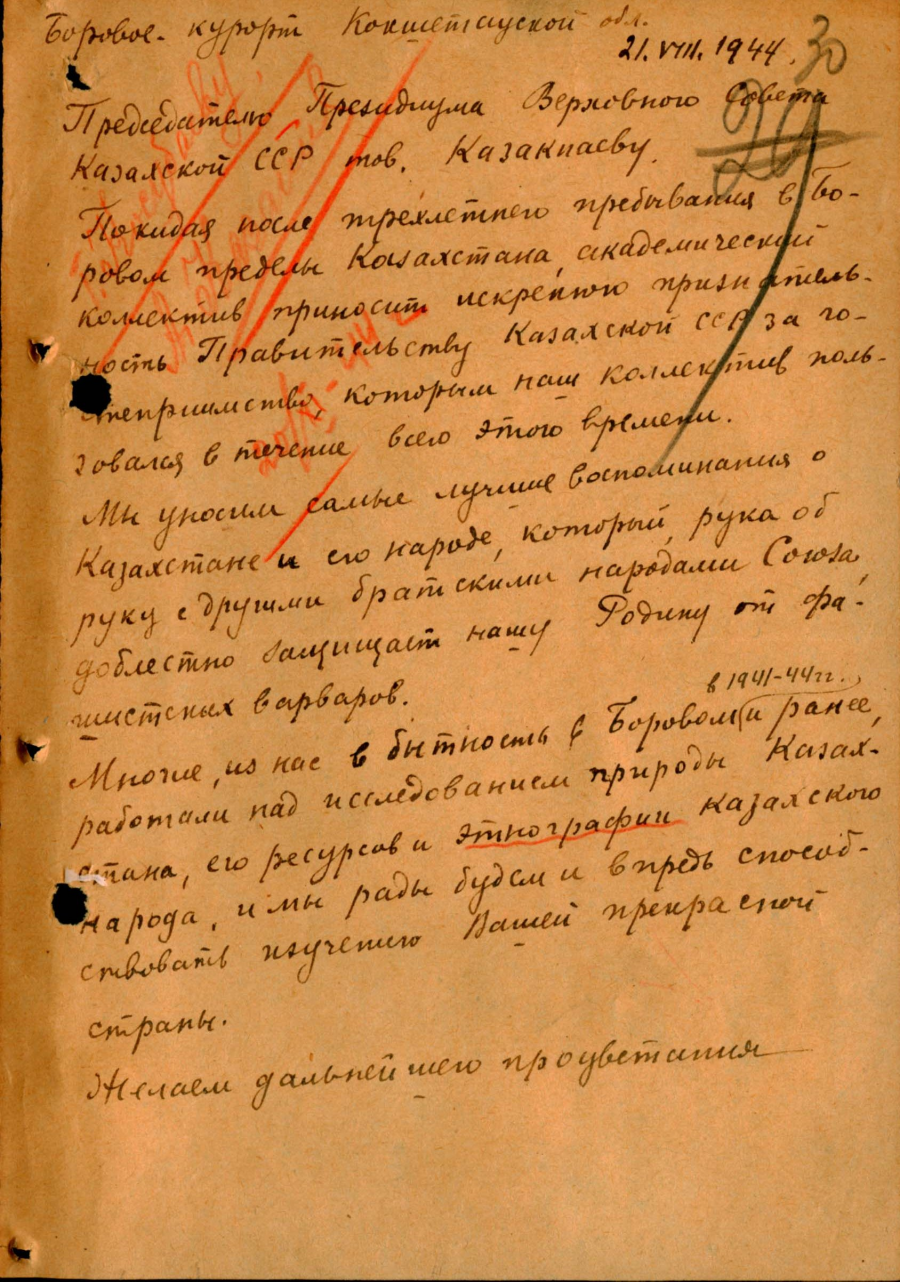 Боровое - курорт Кокшетауской обл.
21.VIII.1944.
30
29
Председателю Президиума Верховного Совета
Казахской ССР тов. Казакпаеву.
Покидая после трехлетнего пребывания в Бо-
ровом пределы Казахстана, академический
коллектив приносит искреннюю признатель-
ность Правительству Казахской ССР за го-
степриимство, которым наш коллектив поль-
зовался в течение всего этого времени.
Мы уносим самые лучшие воспоминания о
Казахстане и его народе, который, рука об
руку с другими братскими народами Союза,
доблестно защищает нашу Родину от фа-
шистских варваров.
в 1941-44 гг.
Многие из нас в бытность в Боровом и ранее,
работали над исследованием природы Казах-
стана, его ресурсов и этнографии казахского
народа, и мы рады будем и впредь способ-
ствовать изучению Вашей прекрасной
страны.
Желаем дальнейшего процветания